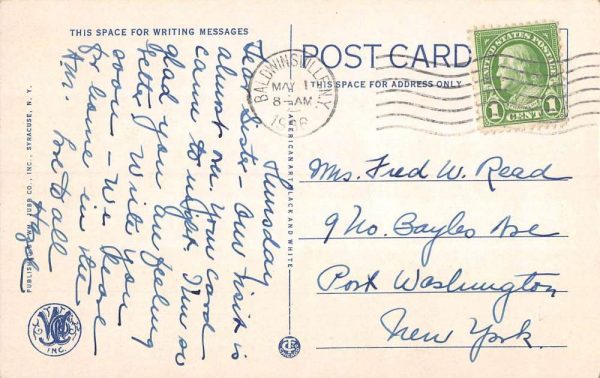 THIS SPACE FOR WRITING MESSAGES
POST CARD
THIS SPACE FOR ADDRESS ONLY
BALDWINSVILLE N.Y.
MAY 1
8-AM
UNITED STATES POSTAGE
1 CENT 1
Thursday
Dear Sister - Our visit is
almost over. Your card
came to night. I'm so
glad you are feeling
better. Write you
soon - We leave
for home in the
A.M. Love to all
Mrs. Fred W. Read
9 No. Bayles Ave
Port Washington
New York.
AMERICAN ART BLACK AND WHITE
PUBLISHED BY WM. JUBB CO., INC., SYRACUSE, N. Y.
INC.